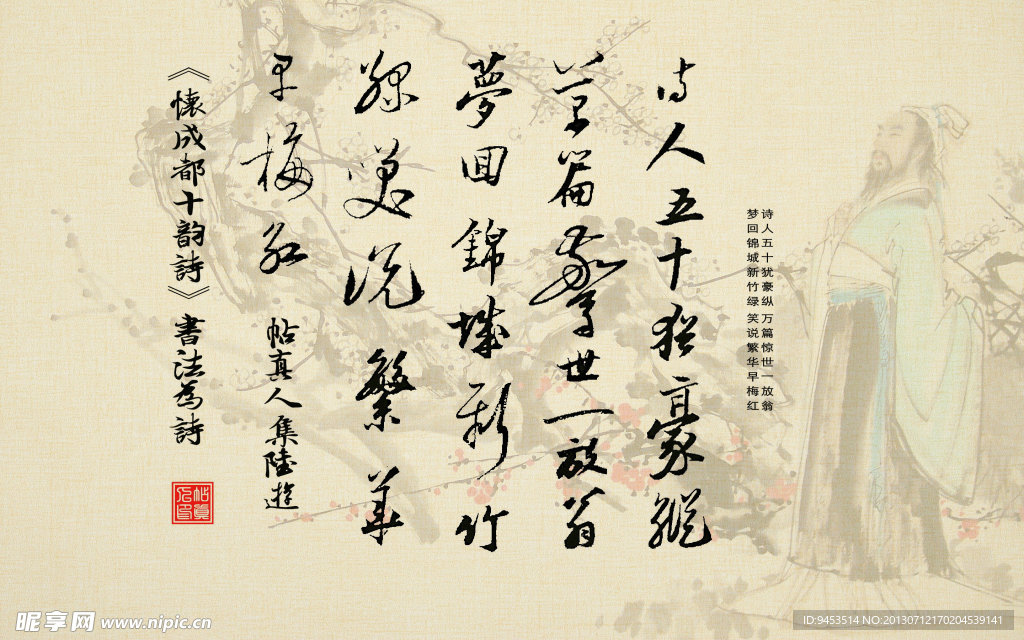 诗人五十犹豪纵 万篇惊世一放翁
梦回锦城新竹绿 笑说繁华早梅红
诗人五十猶豪縱
萬篇驚世一放翁
夢回錦城新竹
綠笑说繁華
早梅红 帖真人集陸遊
《懷成都十韵詩》書法為詩
帖真
人印
昵享网 www.nipic.cn
ID:9453514 NO:20130712170204539141